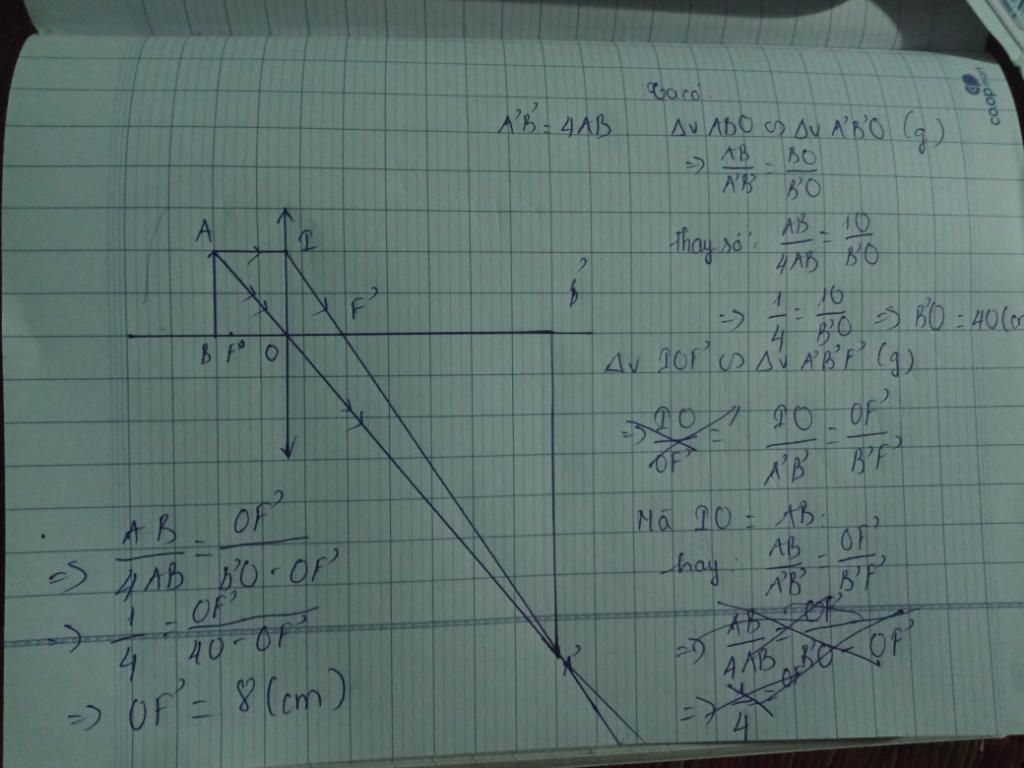 coopmart
Ta có:
A'B' = 4AB
Δv ABO ∽ Δv A'B'O (g)
=> AB/A'B' = BO/B'O
thay số: AB/4AB = 10/B'O
=> 1/4 = 10/B'O => B'O = 40 (cm
Δv IOF' ∽ Δv A'B'F' (g)
=> IO/OF' =
IO/A'B' = OF'/B'F'
Mà IO = AB.
thay: AB/A'B' = OF'/B'F'
=> AB/4AB = OF'/B'O - OF'
=> 1/4 = OF'
A
I
F'
B'
B
F
O
A'
=> AB/4AB = OF'/B'O - OF'
=> 1/4 = OF'/40 - OF'
=> OF' = 8 (cm)